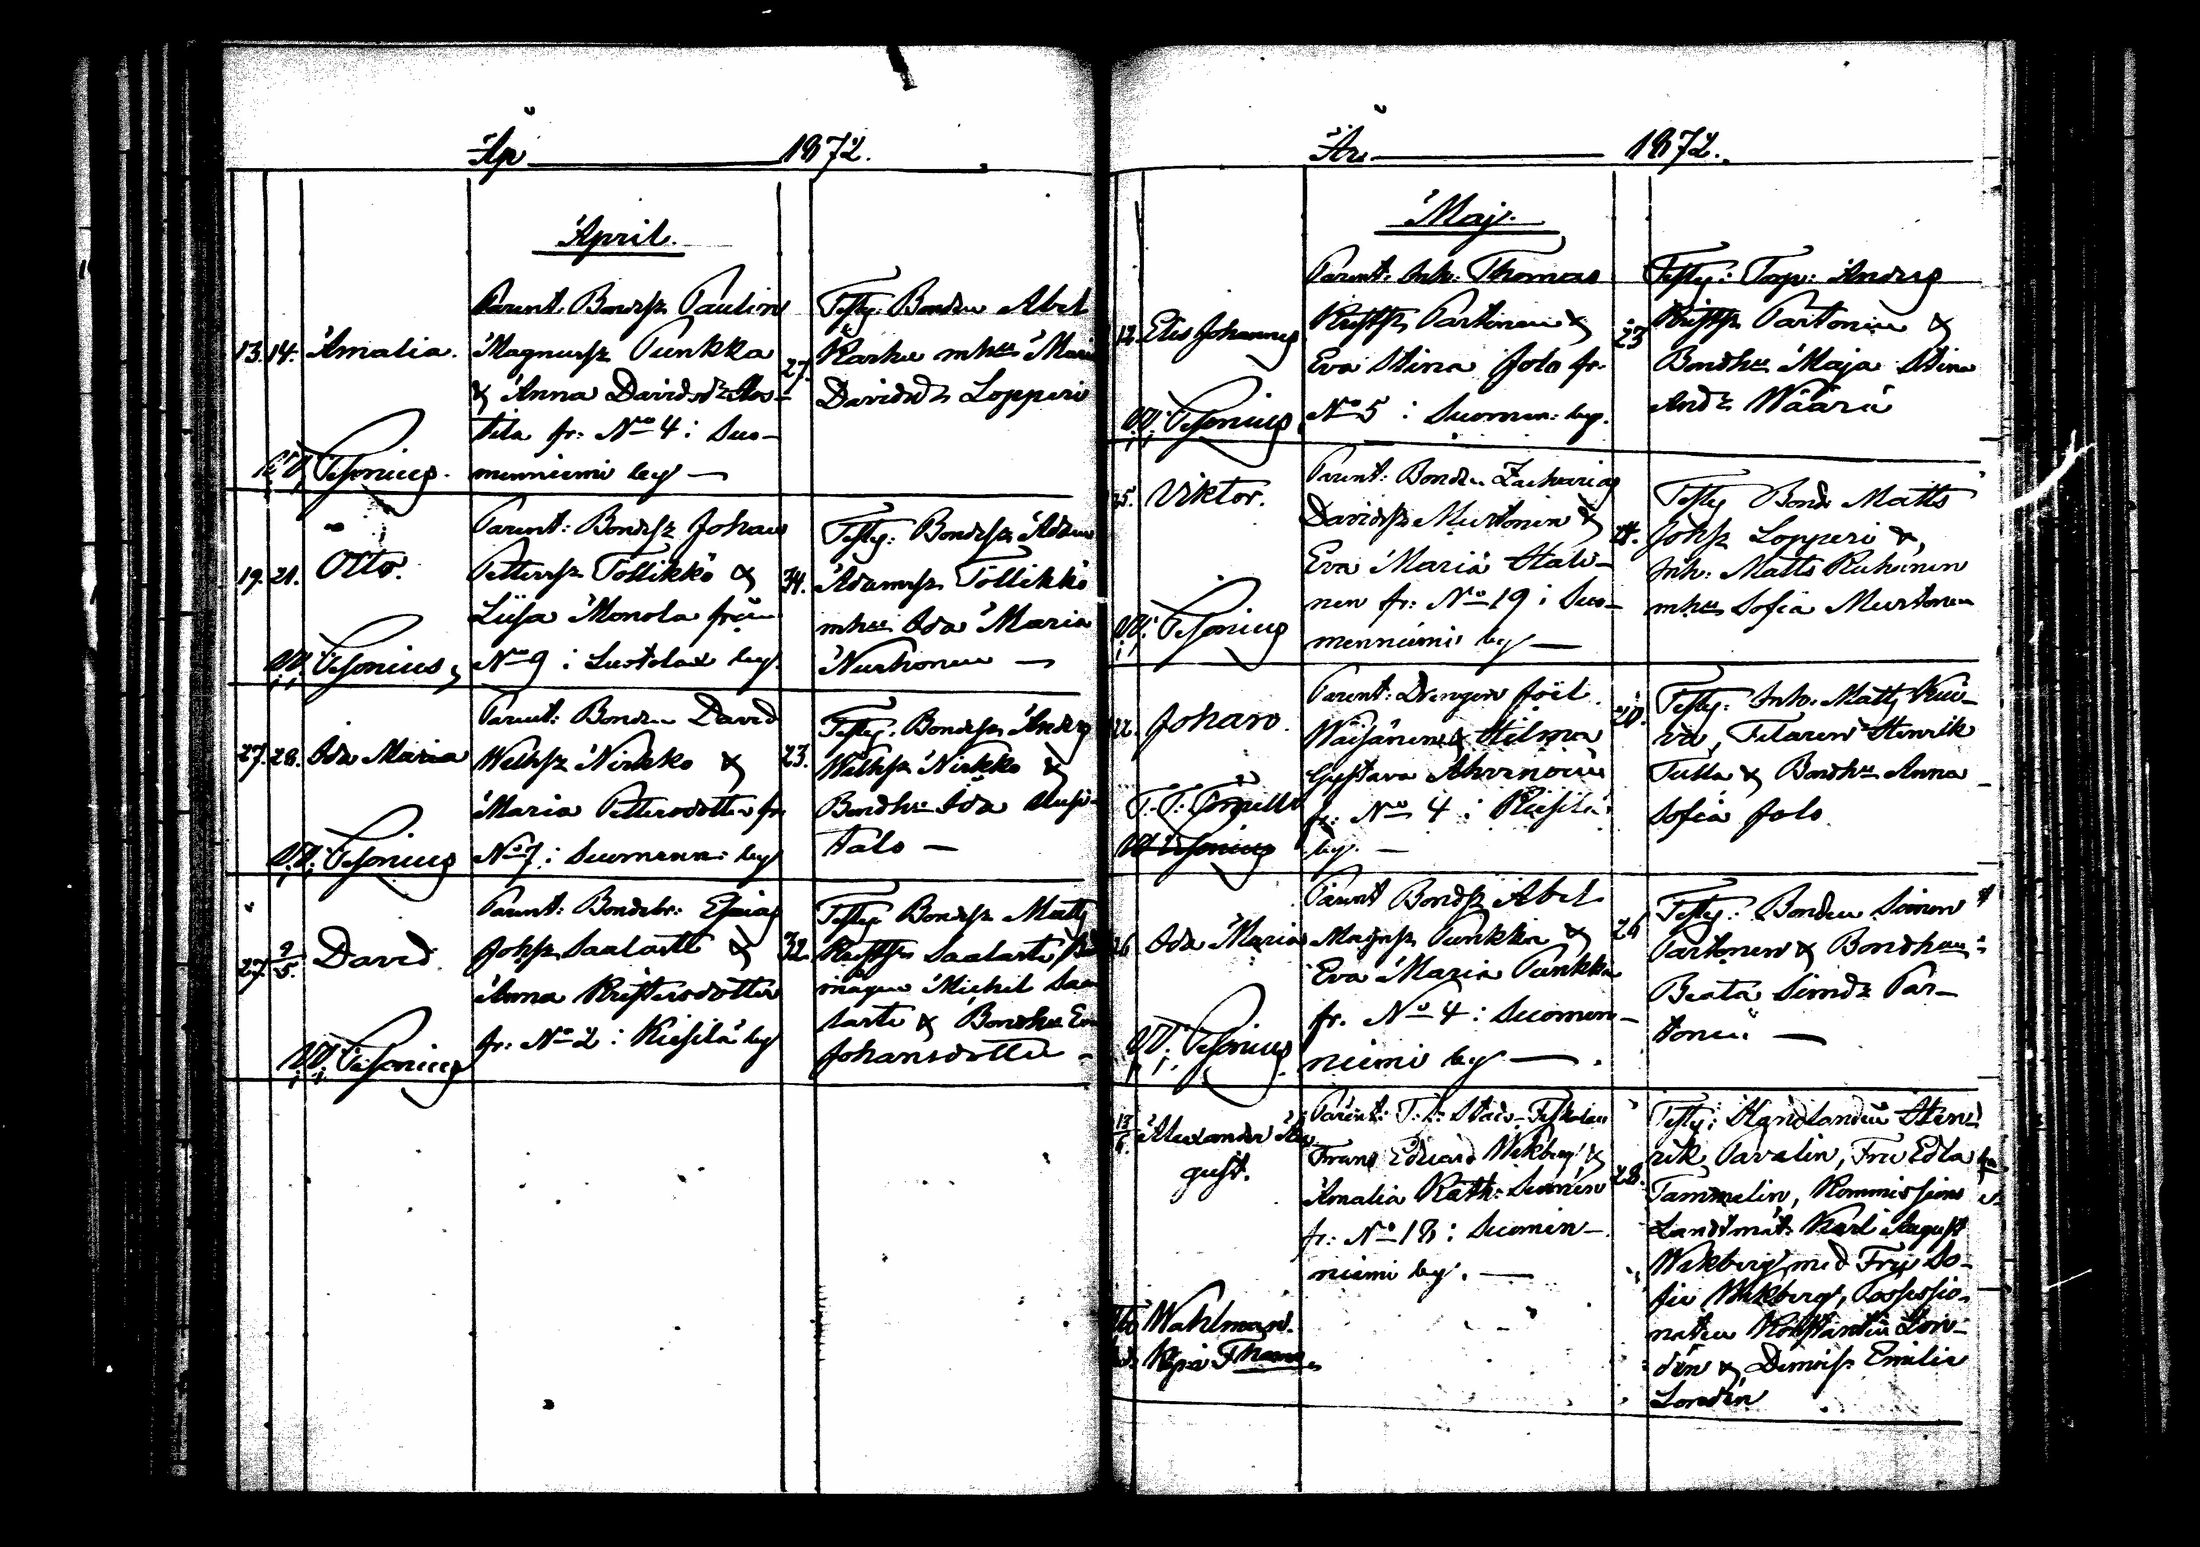 År 1872.
April.
13. 14. Amalia.
Parent. Bondess Paulin
Magnuss Punkka
& Anna Davidsd:r Kos-
tila fr: No 4 i Suo-
menniemi by —
27.
Testy. Bonden Abel
Karhu m hu Maria
Davidsdr Lopperi
19. 21. Otto.
Parent: Bondess Johan
Petterss Tollikko &
Liisa Monola från
No 9 i Luotolax by
34.
Testy: Bondess Adam
Adamss Tollikko
m hu Ida Maria
Nurhonen —
27. 28. Ida Maria
Parent: Bonden David
Wilhss Nirkko &
Maria Pettersdotter fr
No 7 i Suomenn: by
23.
Testy. Bondess Anders
Wilhss Nirkko &
Bondhu Ida
talo —
27. 2/5 David.
Parent: Bondebr: Esaias
Johss Saalasti &
Anna Kristersdotter
fr: No 2 i Kiesilä by
32.
Testy. Bondess Matts
Kristss Saalasti,
mågen Michel Saa
lasti & Bondhu Eva
Johansdotter —
År 1872.
Maj.
12. Elis Johannes
Parent: Inh: Thomas
Kristss Partonen &
Eva Stina Jolo fr.
No 5 i Suomen: by.
23
Testy: Torp: Anders
Kristss Partonen &
Bondhu Maja Stina
Andr Wäärä
25. Viktor.
Parent: Bonden Zacharias
Davidss Murtonen &
Eva Maria Hali-
nen fr: No 19 i Suo-
menniemi by —
Testy Bond Matts
Johss Lopperi &
Inh: Matts Ruhanen
m hu Sofia Murtonen
22. Johan.
Parent: Drengen Joel
Wäisänen & Hilma
Gustava Ahvenoinen
fr: No 4 i Kiesilä
by. —
20.
Testy: Inh. Matts Kui-
va, Filaren Henrik
Tulla & Bondhu Anna
Sofia Jolo
26 Ida Maria
Parent Bondss Abel
Magnss Punkka &
Eva Maria Punkka
fr. No 4 i Suomen-
niemi by —
26
Testy: Bonden Simon
Partonen & Bondhu:
Beata Simdr Par-
tonen —
13/6. Alexander Au
gust.
Parent: T. f. Stads-Fiskalen
Frans Eduard Wikberg &
Amalia Kath: Sunnén
fr: No 18 i Suomen-
niemi by. —
28.
Testy: Handlanden Hen-
rik Pavalin, Fru Edla
Tammelin, Kommissions
Landtmät: Karl August
Wikberg med Fru So-
fie Wikberg, Possessio-
naten Konstantin Lon-
dén & Demoiss Emilie
Londén
Wahlman.